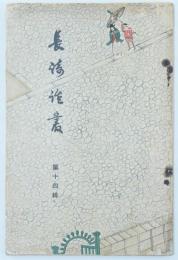 長崎談叢
第十四輯